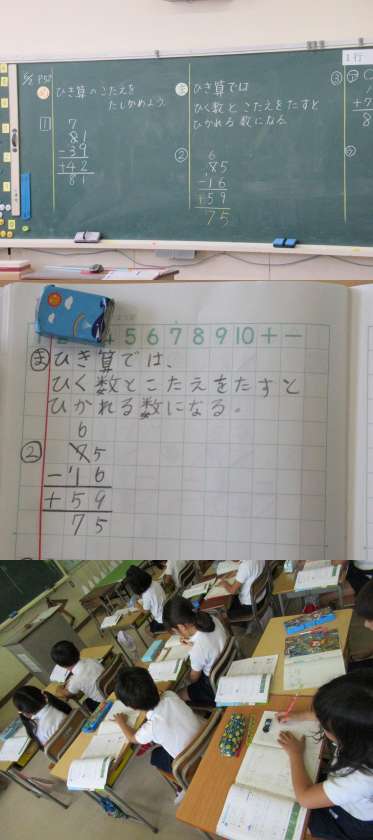 ひき算のこたえを
たしかめよう。
1
7
81
-39
+42
81
ま ひき算では
ひく数とこたえをたすと
ひかれる数になる
②
6
75
-16
+59
75
③
+7
8
5 6 7 8 9 10 + −
ま ひき算では、
ひく数とこたえをたすと
ひかれる数になる。
②
6
75
-16
+59
75